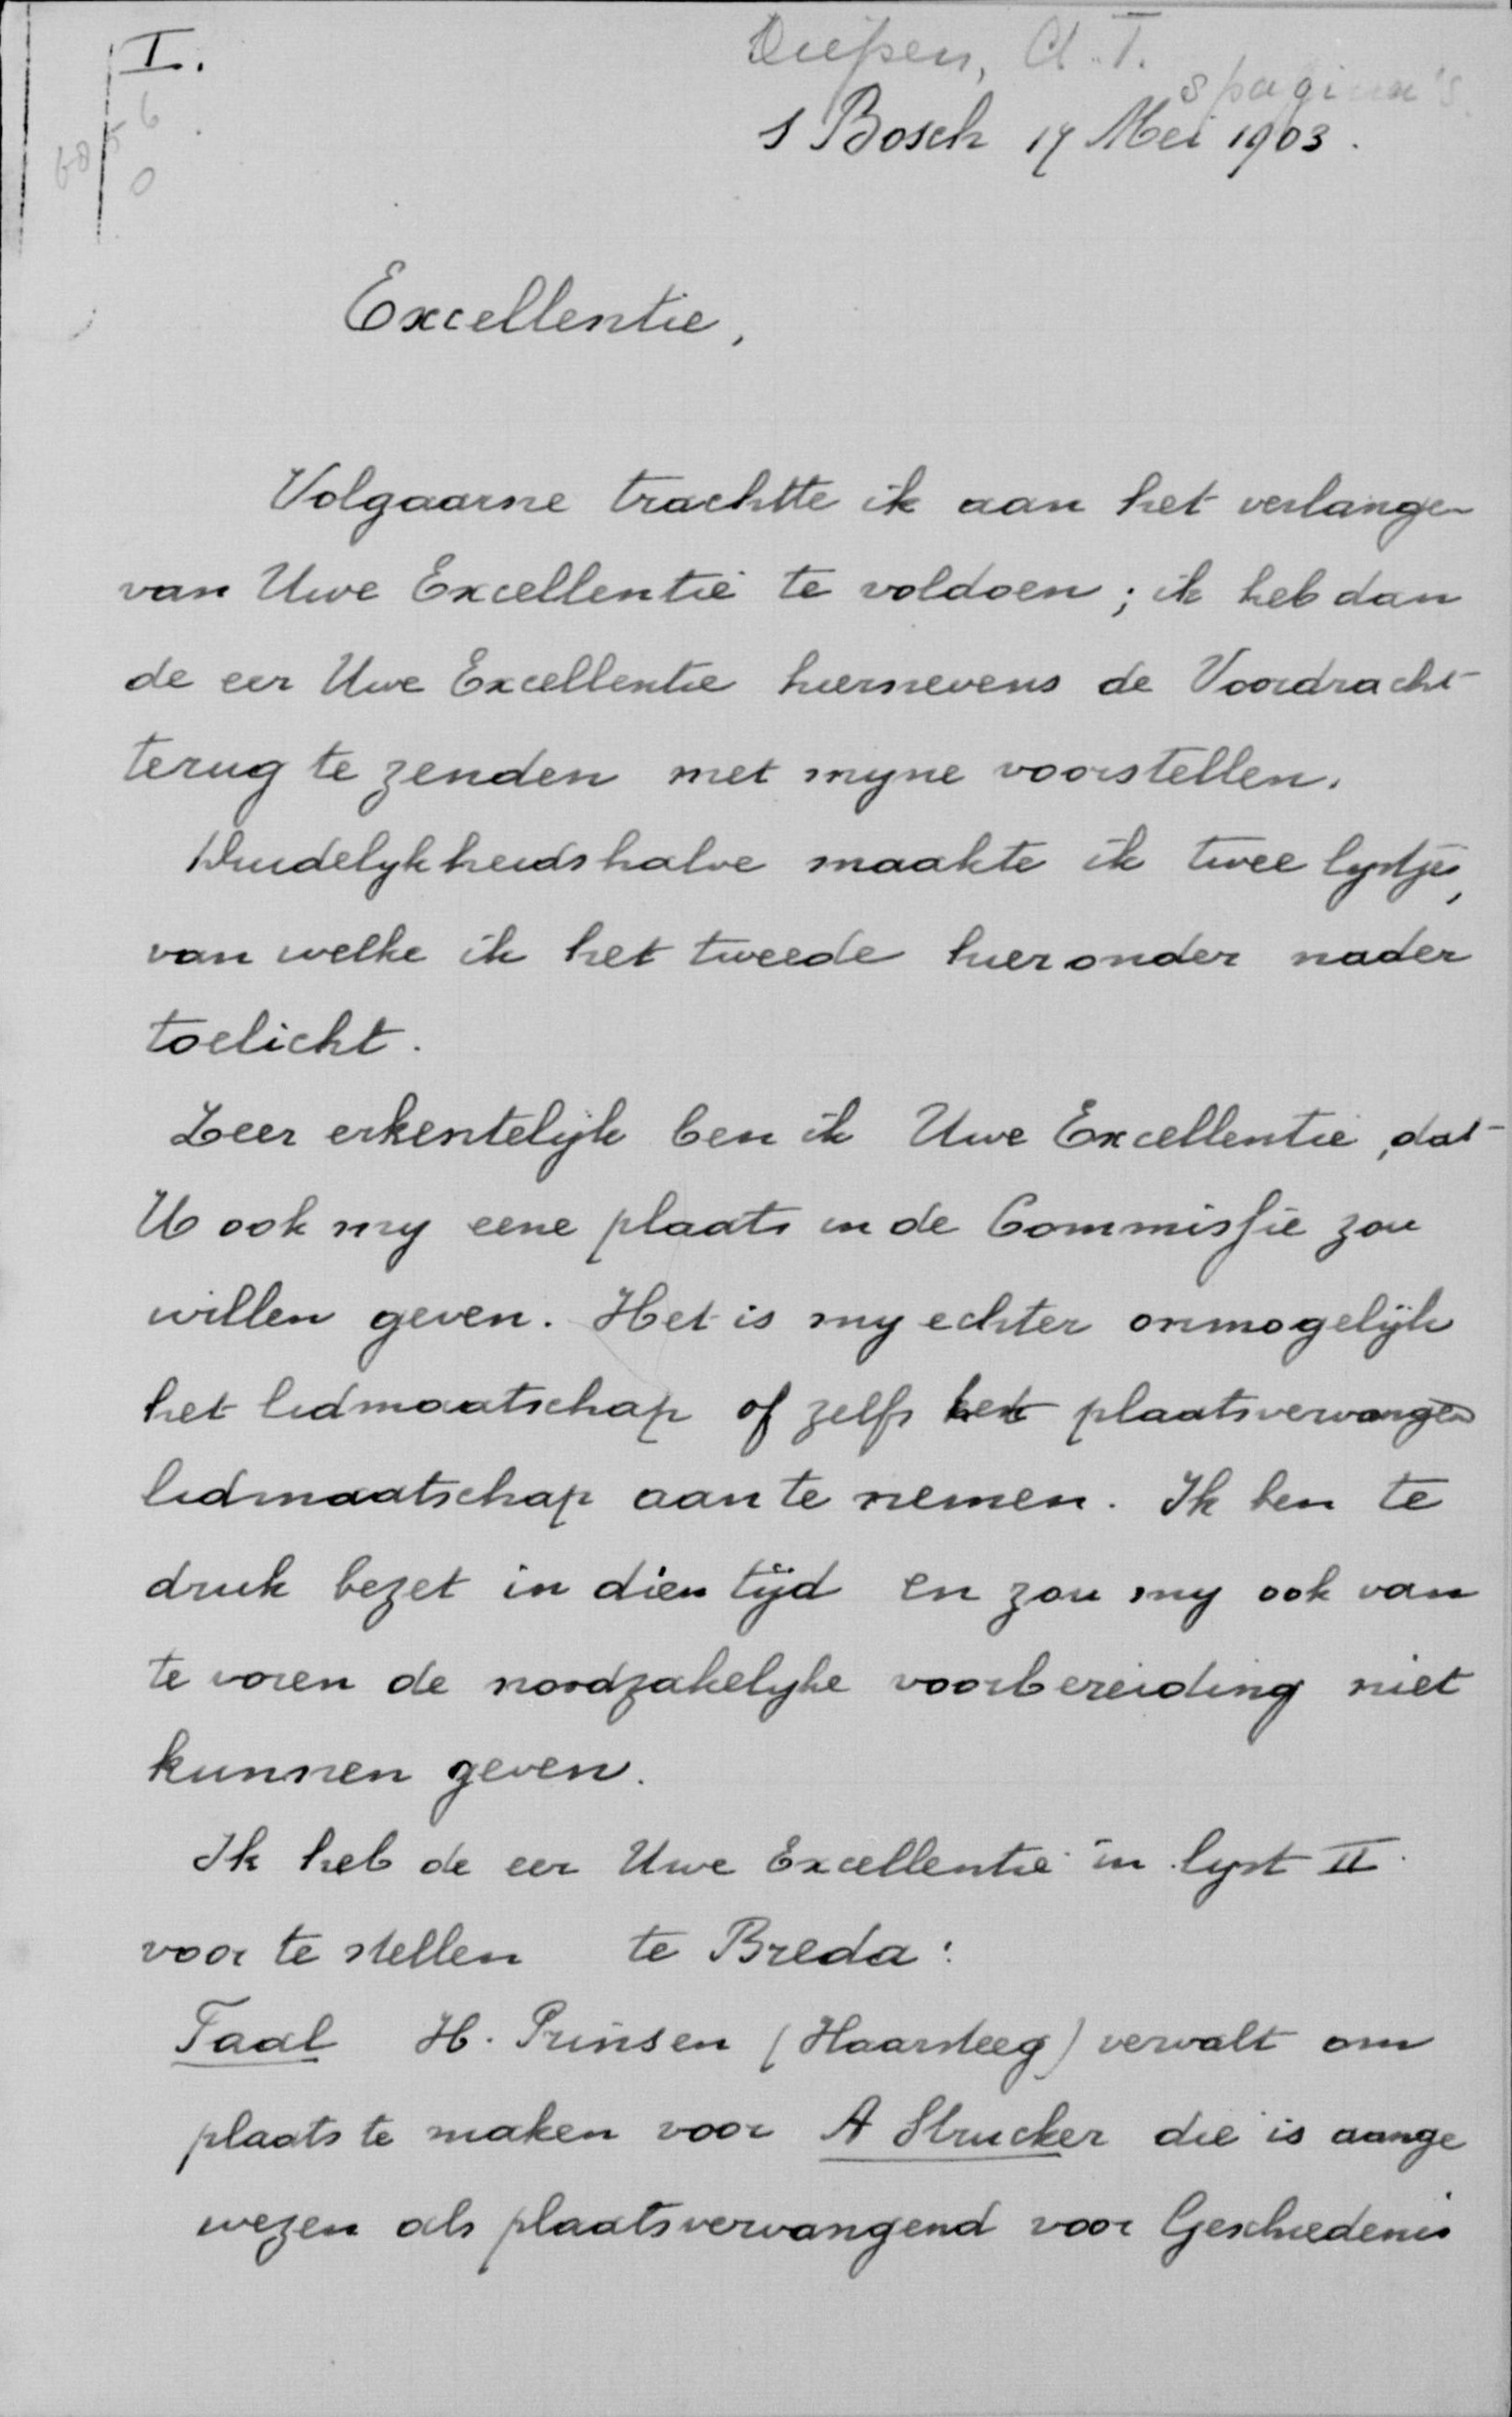 I.
Diepen, A. T.
8 pagina's
s Bosch 17 Mei 1903.
Excellentie,
Volgaarne trachtte ik aan het verlangen
van Uwe Excellentie te voldoen; ik heb dan
de eer Uwe Excellentie hiernevens de Voordracht
terug te zenden met myne voorstellen.
Duidelykheidshalve maakte ik twee lystjes,
van welke ik het tweede hieronder nader
toelicht.
Zeer erkentelijk ben ik Uwe Excellentie, dat
U ook my eene plaats in de Commissie zou
willen geven. Het is my echter onmogelijk
het lidmaatschap of zelfs het plaatsvervangend
lidmaatschap aan te nemen. Ik ben te
druk bezet in dien tijd en zou my ook van
te voren de noodzakelyke voorbereiding niet
kunnen geven.
Ik heb de eer Uwe Excellentie in lyst II
voor te stellen te Breda:
Taal H. Prinsen (Haarsteeg) vervalt om
plaats te maken voor A Strucker die is aange
wezen als plaatsvervangend voor Geschiedenis